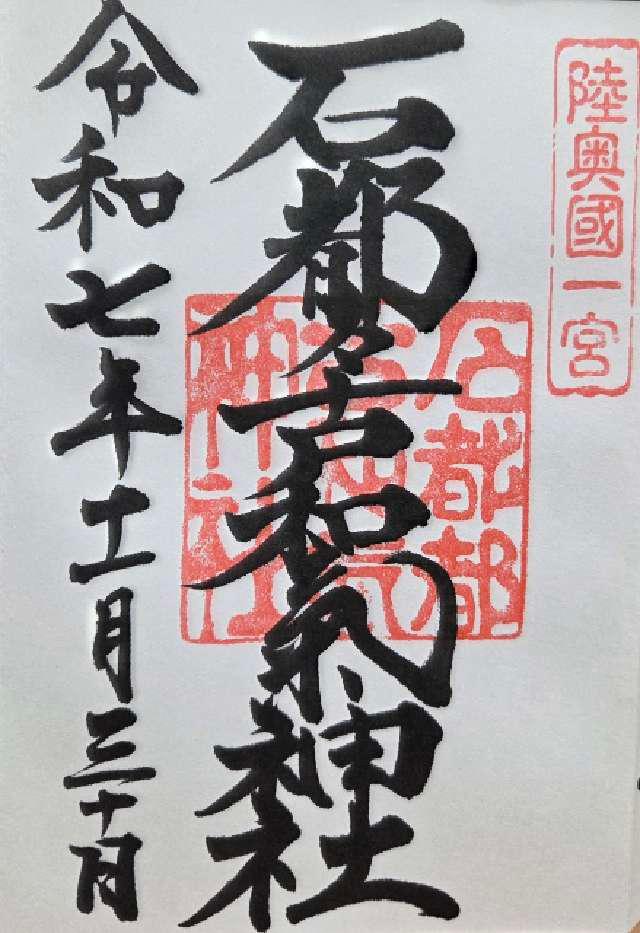 陸奥國一宮
石都々古和氣神社
石都都
古和氣
神社
令和七年十一月三十日